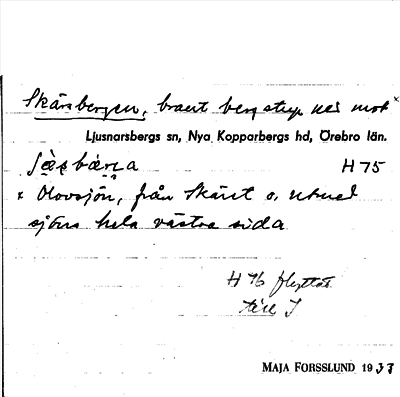 Skärsbergen, brant bergstup ned mot x
Ljusnarsbergs sn, Nya Kopparbergs hd, Örebro län.
H 75
x Olovsjön, från Skäret o. utmed
sjöns hela västra sida
H 76 flyttat
till J
MAJA FORSSLUND 1937